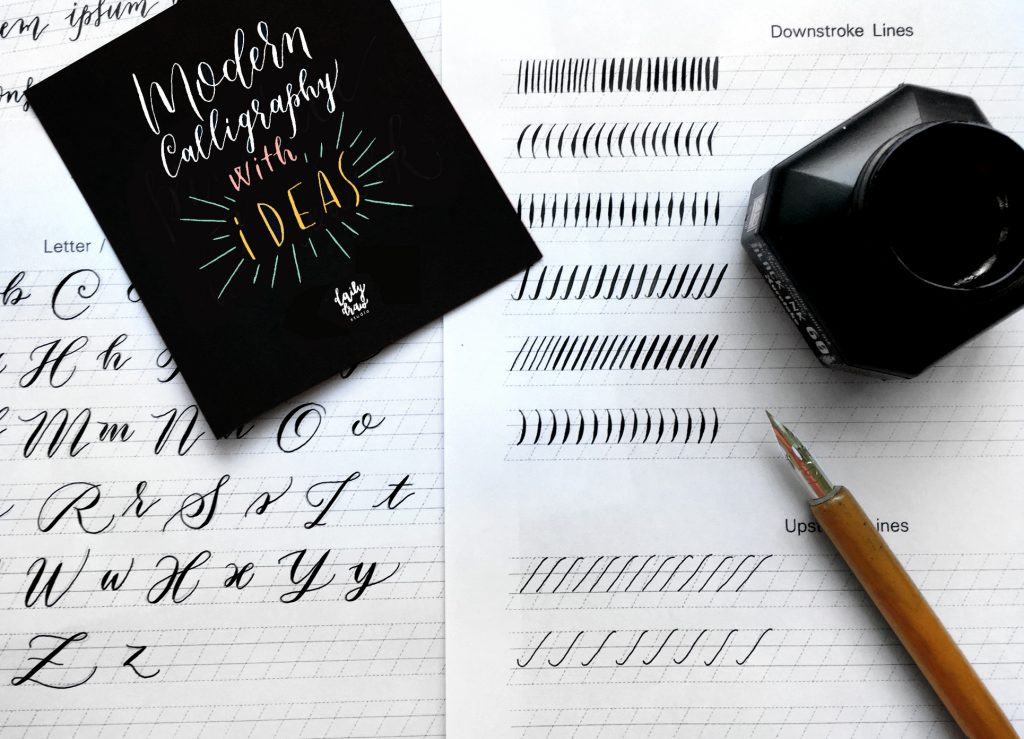 em ipsum
Modern
Calligraphy
with
iDEAS
daily
draw
studio
Letter /
b C
H h
M m N n O o
R r S s T t
W w X x Y y
Z z
Downstroke Lines
60
Ups ines